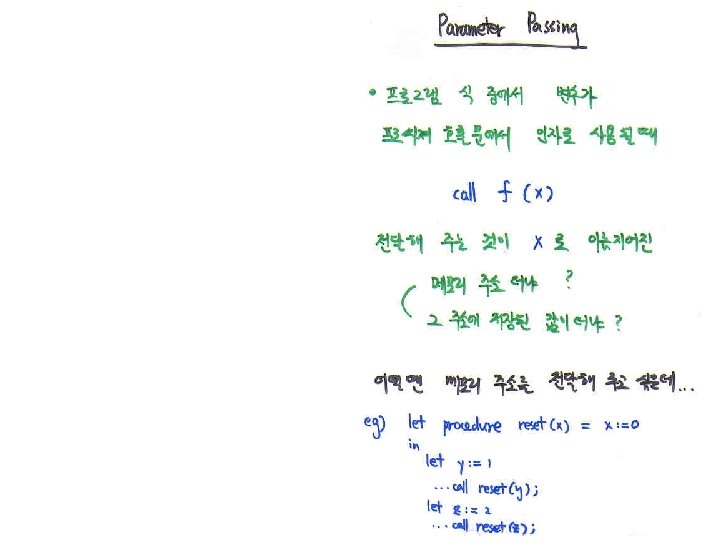 Parameter Passing
• 프로그램 식 중에서 변수가
프로시져 호출문에서 인자로 사용될때
call f (x)
전달해 주는 것이 x 로 이름지어진
메모리 주소 이냐 ?
그 주소에 저장된 값이 이냐 ?
어떨땐 메모리 주소를 전달해 주고 싶은데...
eg) let procedure reset(x) = x:=0
in
let y:=1
...call reset(y);
let z:=2
...call reset(z);